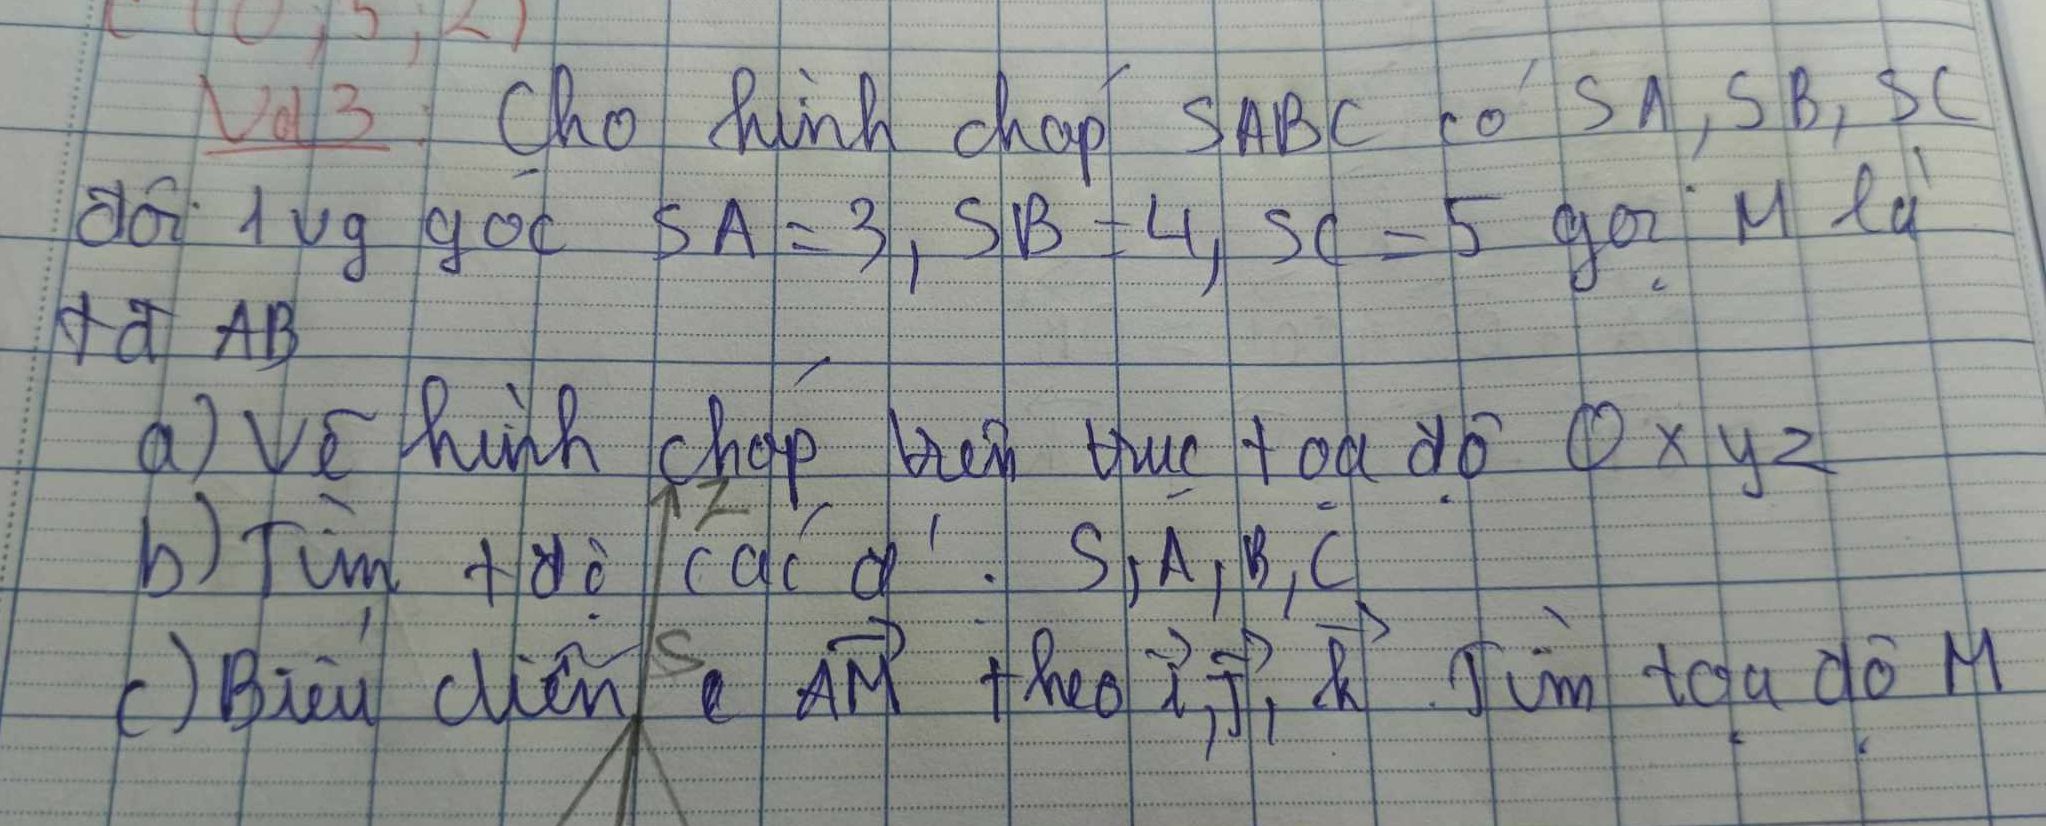 (0; 5; 2)
Vd3: Cho hình chóp SABC có SA, SB, SC
đôi 1 vg góc SA = 3, SB = 4, SC = 5 gọi M là
tđ AB
a) Vẽ hình chóp trên trục toạ độ Oxyz
z
b) Tìm tđộ các đ': S, A, B, C
S
c) Biểu diễn \overrightarrow{AM} theo \vec{i}, \vec{j}, \vec{k}. Tìm toạ độ M